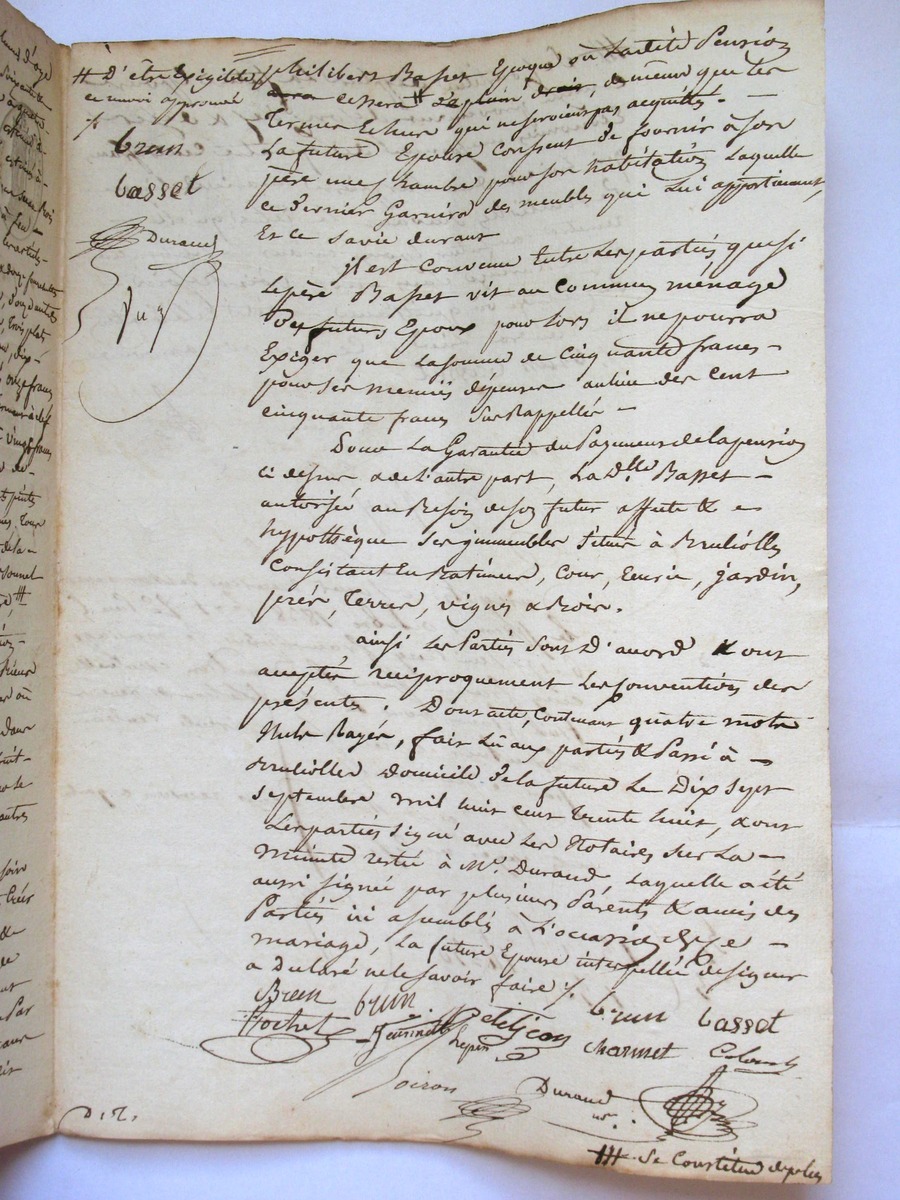 # D'être Exigible
ce renvoi approuvé
brun
basset
Durand
philibert Basset Epoque où ladite Pension
cessera # de plein droit, de même que les
Termes Echus qui ne seroient pas acquittés. —
La future Epouse consent de fournir à son
père une chambre pour son habitation laquelle
ce dernier Garnira des meubles qui lui appartiennent,
Et ce sa vie durant
il est Convenu Entre les parties que si
le père Basset vit au Commun ménage
des futurs Epoux pour lors il ne pourra
Exiger que la somme de Cinquante francs —
pour ses menues dépenses au lieu des Cent
cinquante francs sus Rappellés —
Pour La Garantie du Payement de la pension
ci dessus & de l'autre part, La Dlle Basset —
autorisée au Besoin de son futur affecte &
hypothèque ses immeubles situés à Brullioles
Consistant En Batiments, Cour, Ecurie, jardin,
prés, Terres, vignes & Bois.
ainsi Les Parties sont D'accord & ont
acceptés réciproquement les Conventions des
présentes. Dont acte, Contenant quatre mots
Nuls Rayés, fait Lu aux parties & Passé à —
Brullioles Domicile de la future Le Dix sept
septembre mil huit cent trente huit, & ont
Les parties signé avec les Notaires sur La —
Minute restée à Me. Durand laquelle a été
aussi signée par plusieurs Parents & amis des
Parties ici assemblés à L'occasion de ce —
mariage, La future Epouse interpellée de signer
a Déclaré ne le savoir faire /.
Brun brun. Petitjean brun basset
Jeannet Lepin charmet Colomb
Loiron Durand
D. T.
### Se Constitue de plus